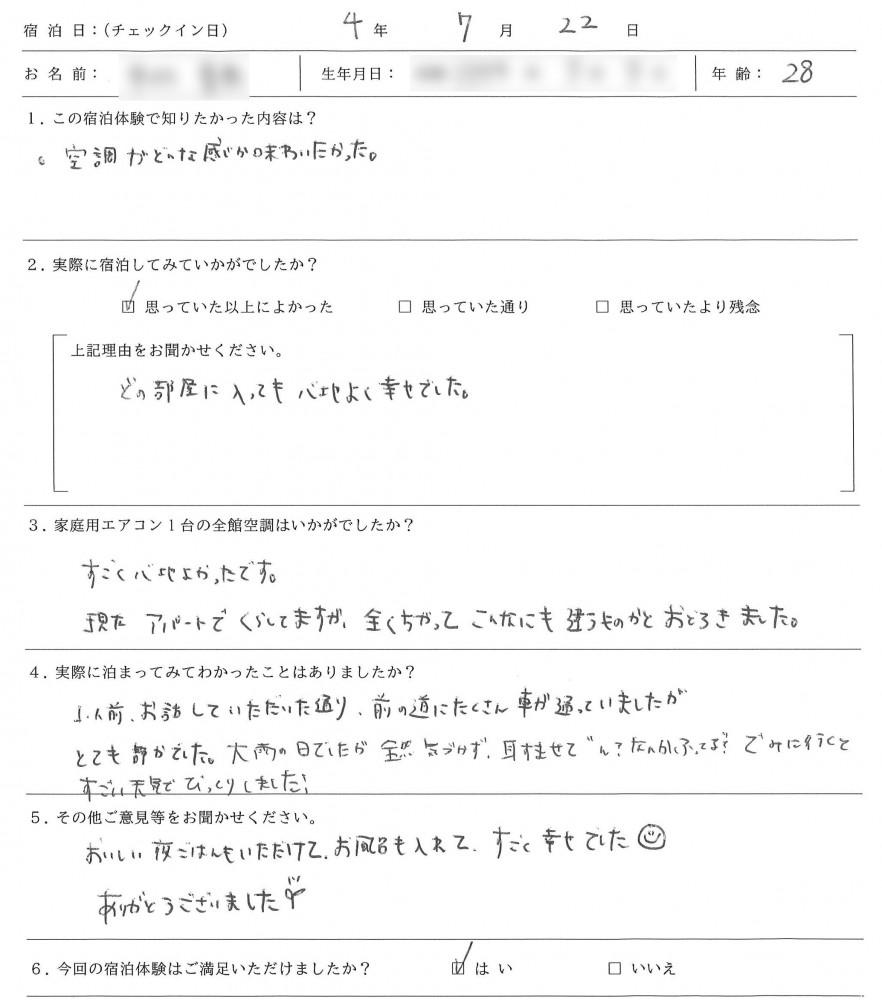 宿 泊 日：(チェックイン日) 4 年 7 月 22 日
お 名 前： 生年月日： 年 齢： 28
1. この宿泊体験で知りたかった内容は？
。空調がどんな感じか味わいたかった。
2. 実際に宿泊してみていかがでしたか？
☑ 思っていた以上によかった □ 思っていた通り □ 思っていたより残念
上記理由をお聞かせください。
どの部屋に入っても心地よく幸せでした。
3. 家庭用エアコン1台の全館空調はいかがでしたか？
すごく心地よかったです。
現在 アパートで くらしてますが、全くちがって こんなにも 違うものかと おどろきました。
4. 実際に泊まってみてわかったことはありましたか？
前、お話していただいた通り、前の道にたくさん車が通っていましたが
とても静かでした。大雨の日でしたが 全然 気づかず、耳すませて"ん？なんかふってる？ みに行くと
すごい天気で びっくりしました！
5. その他ご意見等をお聞かせください。
おいしい 夜ごはんもいただけて、お風呂も入れて、すごく 幸せでした☺
ありがとうございました
6. 今回の宿泊体験はご満足いただけましたか？ ☑ は い □ いいえ